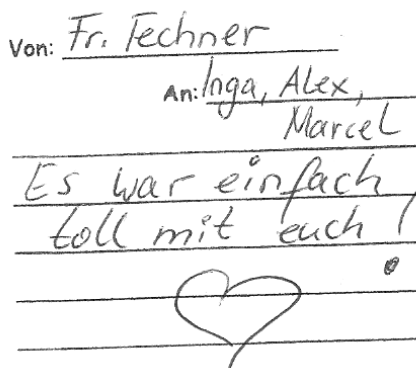 Von: Fr. Techner
An: Inga, Alex,
Marcel
Es war einfach
toll mit euch!